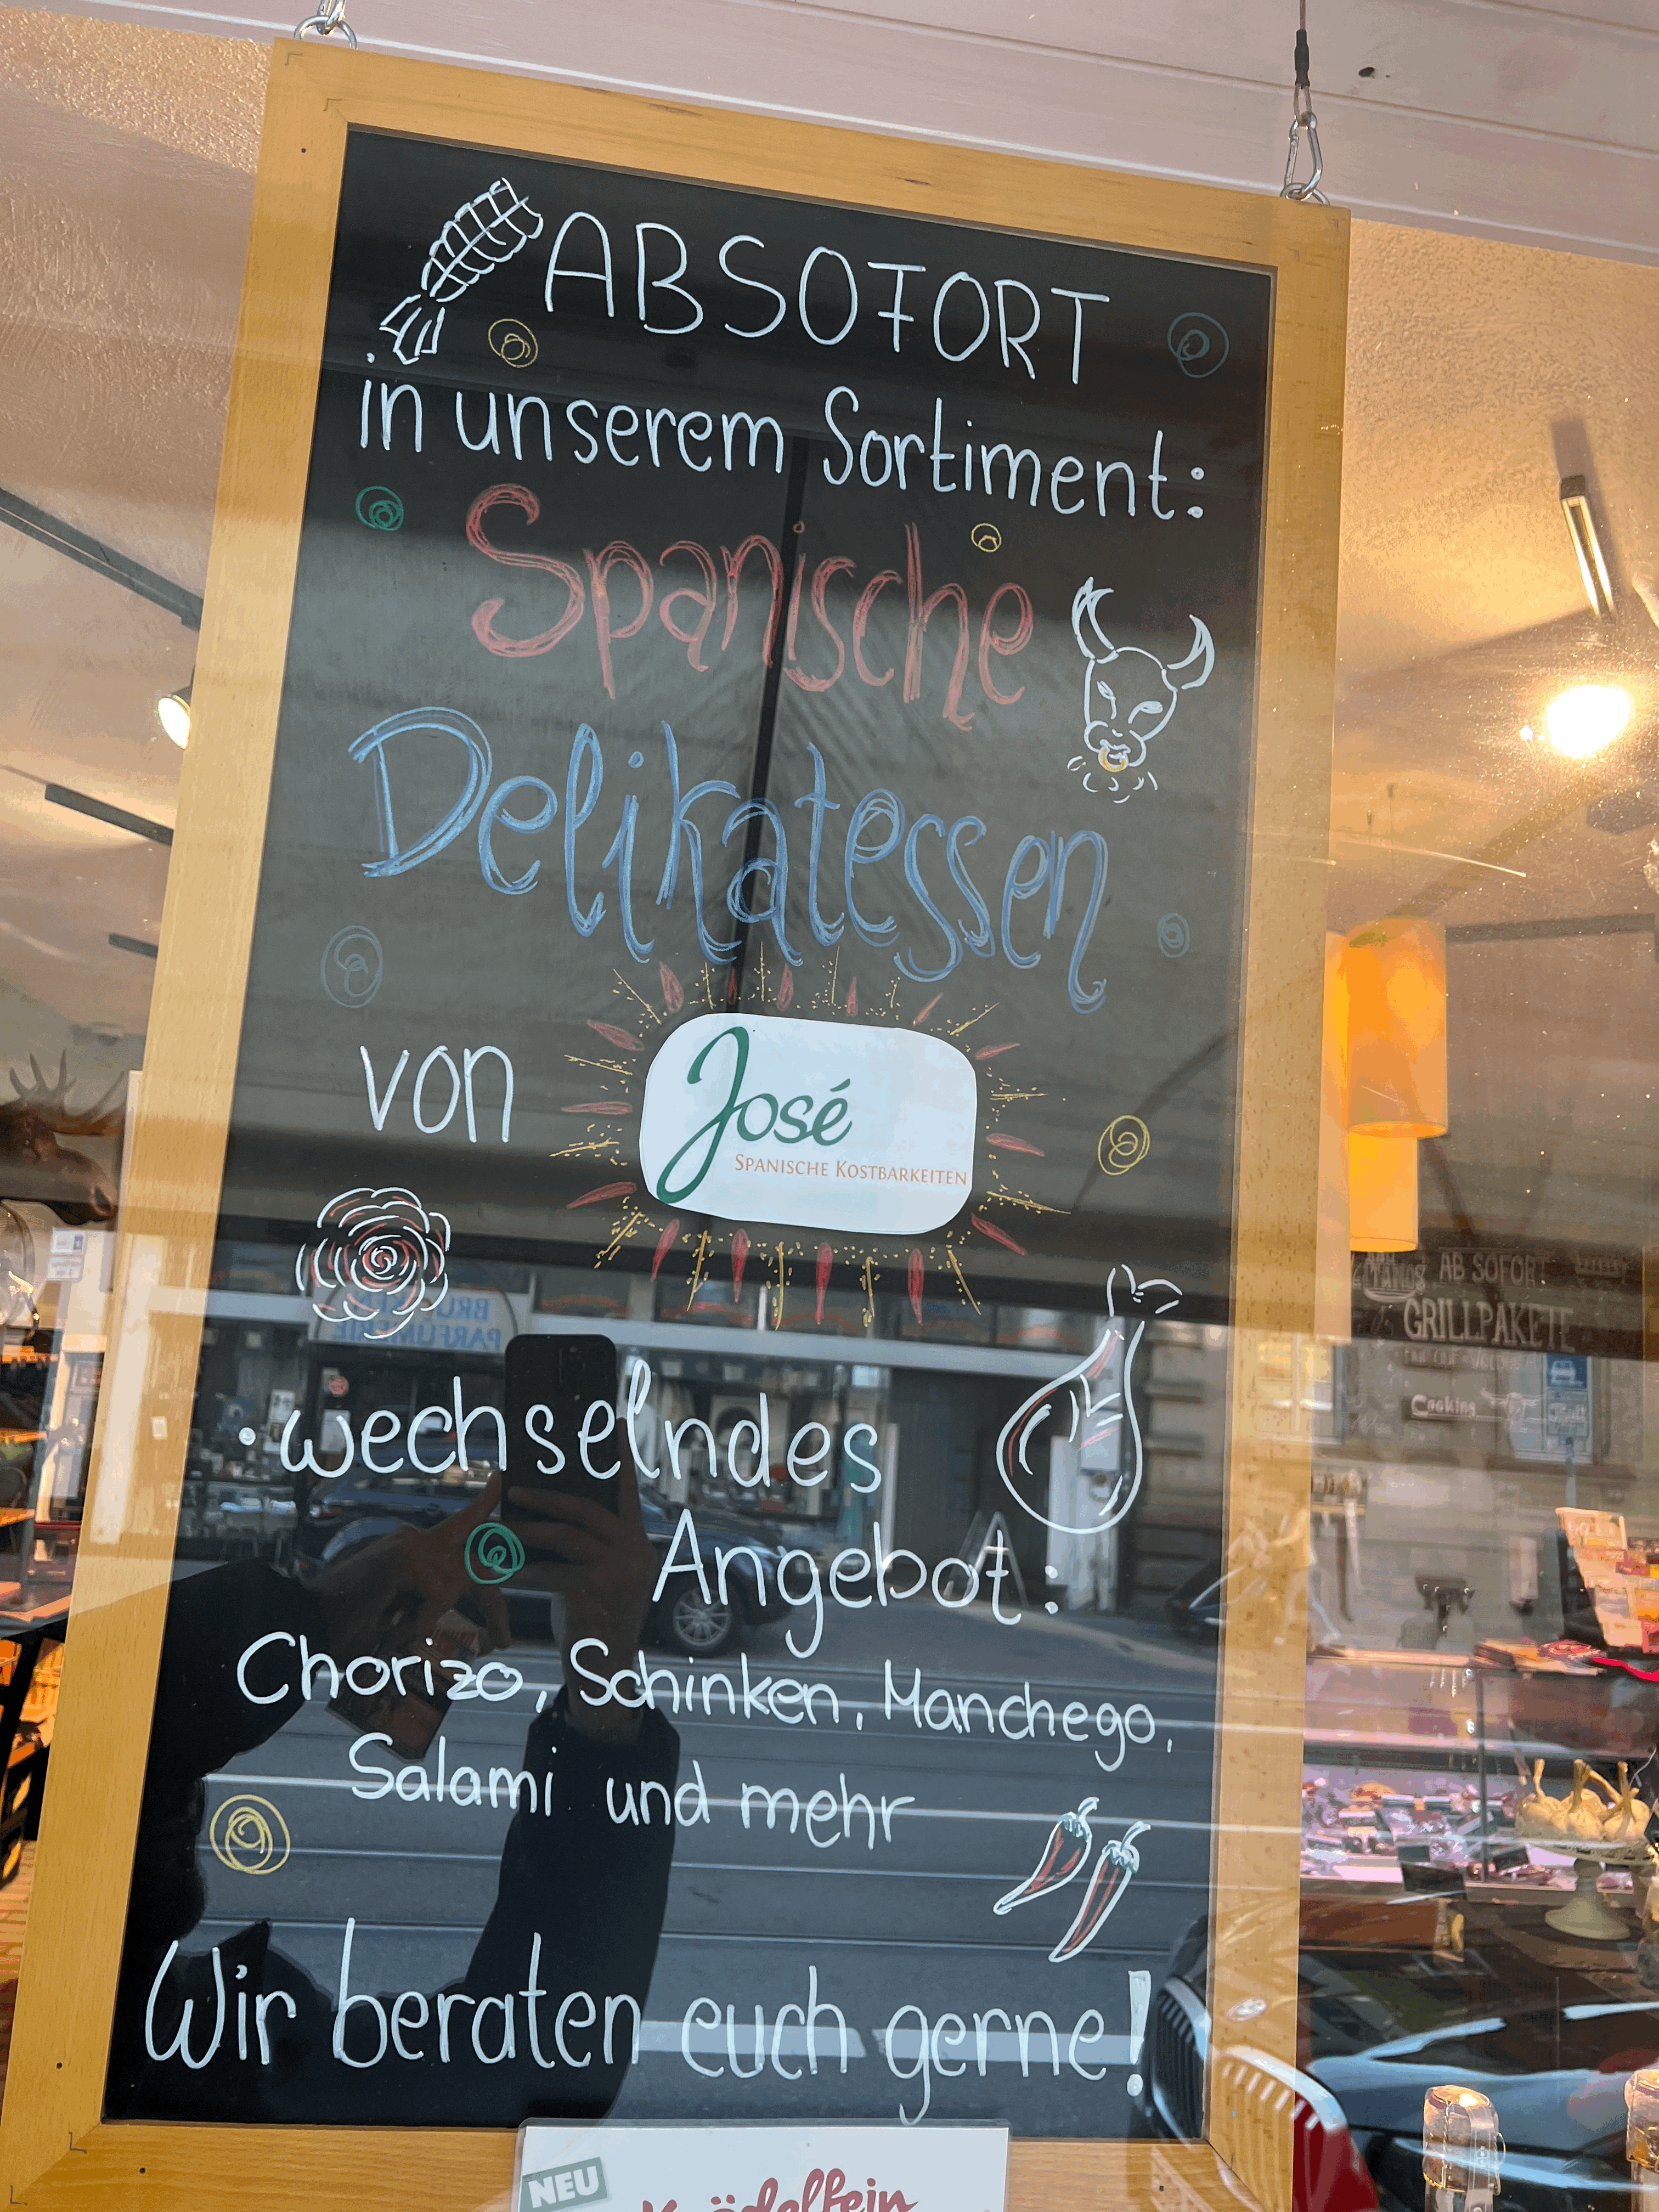 ABSOFORT
in unserem Sortiment:
Spanische
Delikatessen
von
José
SPANISCHE KOSTBARKEITEN
• wechselndes
Angebot:
Chorizo, Schinken, Manchego,
Salami und mehr
Wir beraten euch gerne!
NEU
Knödelfein
AB SOFORT
GRILLPAKETE
Cooking
PARFÜMERIE